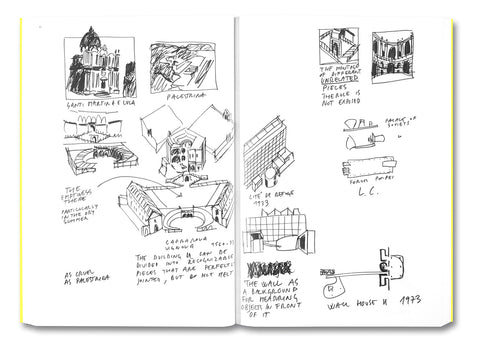 SANTI MARTINA E LUCA
PALESTRINA
THE
EMPTINESS
THERE
PARTICULARLY
IN THE DRY
SUMMER
AS CRUEL
AS PALESTRINA
CAPRAROLA
THE BUILDING CAN BE
DIVIDED INTO RECOGNIZABLE
PIECES THAT ARE PERFECTLY
JOINTED, BUT DO NOT MELT
THE MONTAGE
OF DIFFERENT
UNRELATED
PIECES
THE RULE IS
NOT EXPOSED
PALACE OF
SOVIETS
FORUM POMPEI
L.C.
CITE DE REFUGE
THE WALL AS
A BACKGROUND
FOR
OBJECTS IN FRONT
OF IT
WALL HOUSE II 1973